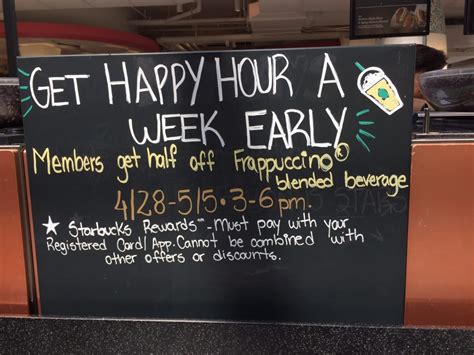 GET HAPPY HOUR A
WEEK EARLY
Members get half off Frappuccino®
blended beverage
4/28-5/5 • 3-6 pm.
★ Starbucks Rewards™ - Must pay with your
Registered Card/App. Cannot be combined with
other offers or discounts.